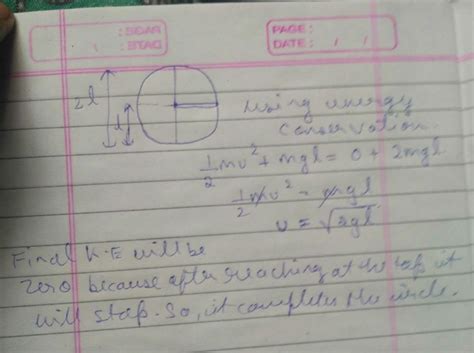 PAGE:
DATE: / /
2l
l
using energy
conservation.
1/2 mv² + mgl = 0 + 2mgl
1/2 mv² = mgl
v = √2gl
Final K.E will be
zero because after reaching at the top it
will stop. So, it completes the circle.